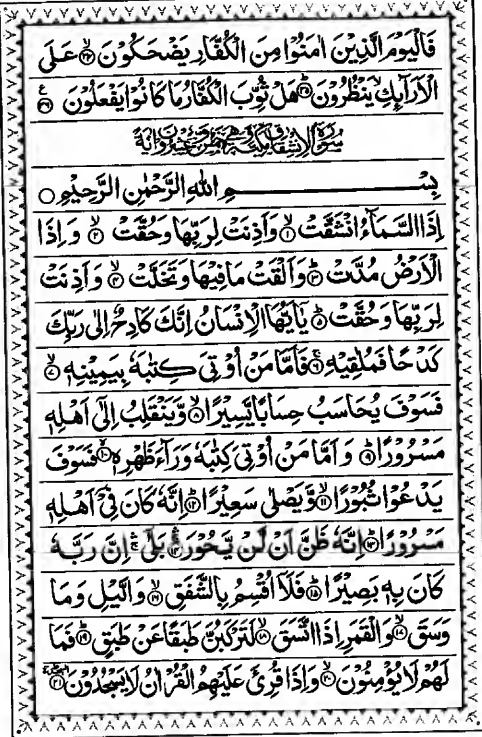 فَالْيَوْمَ الَّذِيْنَ اٰمَنُوْا مِنَ الْكُفَّارِ يَضْحَكُوْنَ ۙ﴿۳۴﴾ عَلَى
الْاَرَآىِٕكِ ۙ يَنْظُرُوْنَ ؕ﴿۳۵﴾ هَلْ ثُوِّبَ الْكُفَّارُ مَا كَانُوْا يَفْعَلُوْنَ ﴿۳۶﴾ ع
سُوْرَةُ الْاِنْشِقَاقِ مَكِّيَّةٌ
بِسْمِ اللّٰهِ الرَّحْمٰنِ الرَّحِيْمِ ○
اِذَا السَّمَآءُ انْشَقَّتْ ۙ﴿۱﴾ وَاَذِنَتْ لِرَبِّهَا وَحُقَّتْ ۙ﴿۲﴾ وَاِذَا
الْاَرْضُ مُدَّتْ ؕ﴿۳﴾ وَاَلْقَتْ مَا فِيْهَا وَتَخَلَّتْ ۙ﴿۴﴾ وَاَذِنَتْ
لِرَبِّهَا وَحُقَّتْ ؕ﴿۵﴾ يٰۤاَيُّهَا الْاِنْسَانُ اِنَّكَ كَادِحٌ اِلٰى رَبِّكَ
كَدْحًا فَمُلٰقِيْهِ ۚ﴿۶﴾ فَاَمَّا مَنْ اُوْتِيَ كِتٰبَهٗ بِيَمِيْنِهٖ ۙ﴿۷﴾
فَسَوْفَ يُحَاسَبُ حِسَابًا يَّسِيْرًا ۙ﴿۸﴾ وَّيَنْقَلِبُ اِلٰۤى اَهْلِهٖ
مَسْرُوْرًا ؕ﴿۹﴾ وَاَمَّا مَنْ اُوْتِيَ كِتٰبَهٗ وَرَآءَ ظَهْرِهٖ ۙ﴿۱۰﴾ فَسَوْفَ
يَدْعُوْا ثُبُوْرًا ۙ﴿۱۱﴾ وَّيَصْلٰى سَعِيْرًا ؕ﴿۱۲﴾ اِنَّهٗ كَانَ فِيْۤ اَهْلِهٖ
مَسْرُوْرًا ؕ﴿۱۳﴾ اِنَّهٗ ظَنَّ اَنْ لَّنْ يَّحُوْرَ ۚ﴿۱۴﴾ بَلٰۤى ۚ اِنَّ رَبَّهٗ
كَانَ بِهٖ بَصِيْرًا ؕ﴿۱۵﴾ فَلَاۤ اُقْسِمُ بِالشَّفَقِ ۙ﴿۱۶﴾ وَالَّيْلِ وَمَا
وَسَقَ ۙ﴿۱۷﴾ وَالْقَمَرِ اِذَا اتَّسَقَ ۙ﴿۱۸﴾ لَتَرْكَبُنَّ طَبَقًا عَنْ طَبَقٍ ؕ﴿۱۹﴾ فَمَا
لَهُمْ لَا يُؤْمِنُوْنَ ۙ﴿۲۰﴾ وَاِذَا قُرِئَ عَلَيْهِمُ الْقُرْاٰنُ لَا يَسْجُدُوْنَ ﴿۲۱﴾